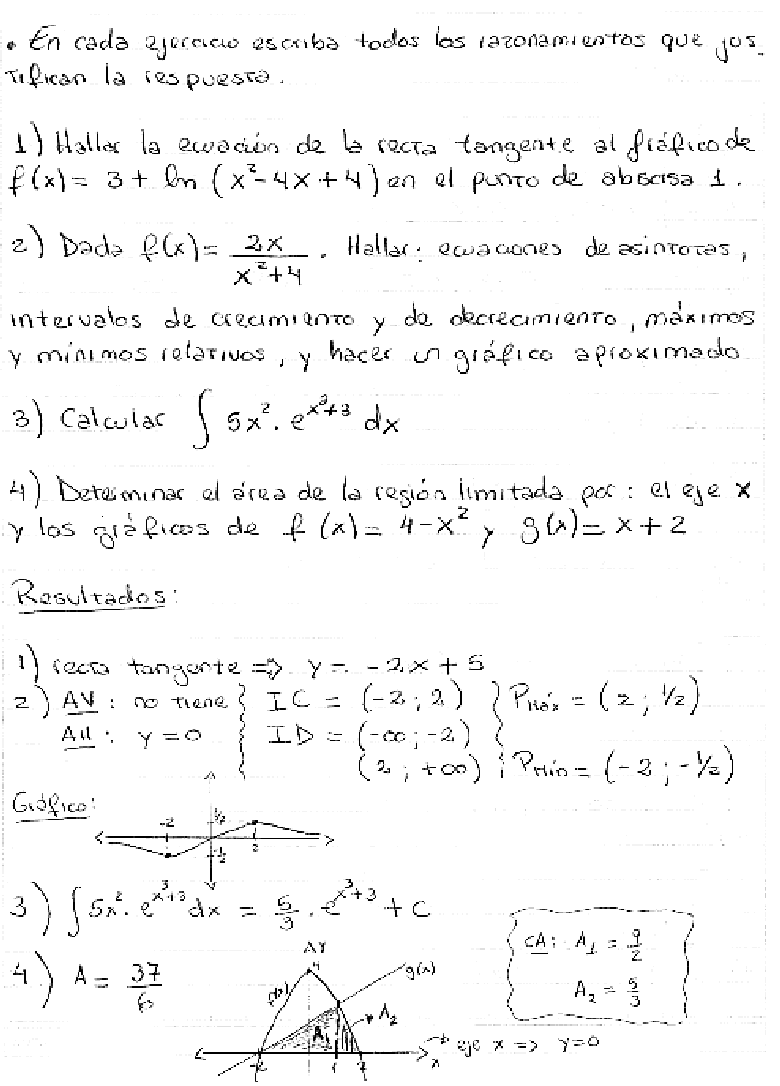 • En cada ejercicio escriba todos los razonamientos que jus-
tifican la respuesta.
1) Hallar la ecuación de la recta tangente al gráfico de
f(x) = 3 + ln (x²-4x+4) en el punto de abscisa 1.
2) Dada f(x) = 2x / (x²+4) . Hallar: ecuaciones de asíntotas,
intervalos de crecimiento y de decrecimiento, máximos
y mínimos relativos, y hacer un gráfico aproximado
3) Calcular ∫ 5x². e^(x³+3) dx
4) Determinar el área de la región limitada por: el eje x
y los gráficos de f (x) = 4-x² y g(x) = x+2
Resultados:
1) recta tangente => y = -2x+5
2) AV : no tiene { IC = (-2;2) } Pmáx = (2; 1/2)
AH : y=0 { ID = (-∞;-2)
(2; +∞) ; Pmín = (-2; -1/2)
Gráfico:
-2 1/2 -1/2 2
3) ∫5x². e^(x³+3) dx = 5/3 . e^(x³+3) + C
CA: A₁ = 9/2
A₂ = 5/3
4) A = 37/6
y 4 f(x) g(x)
A₁ A₂
-2 1 2 x eje x => y=0